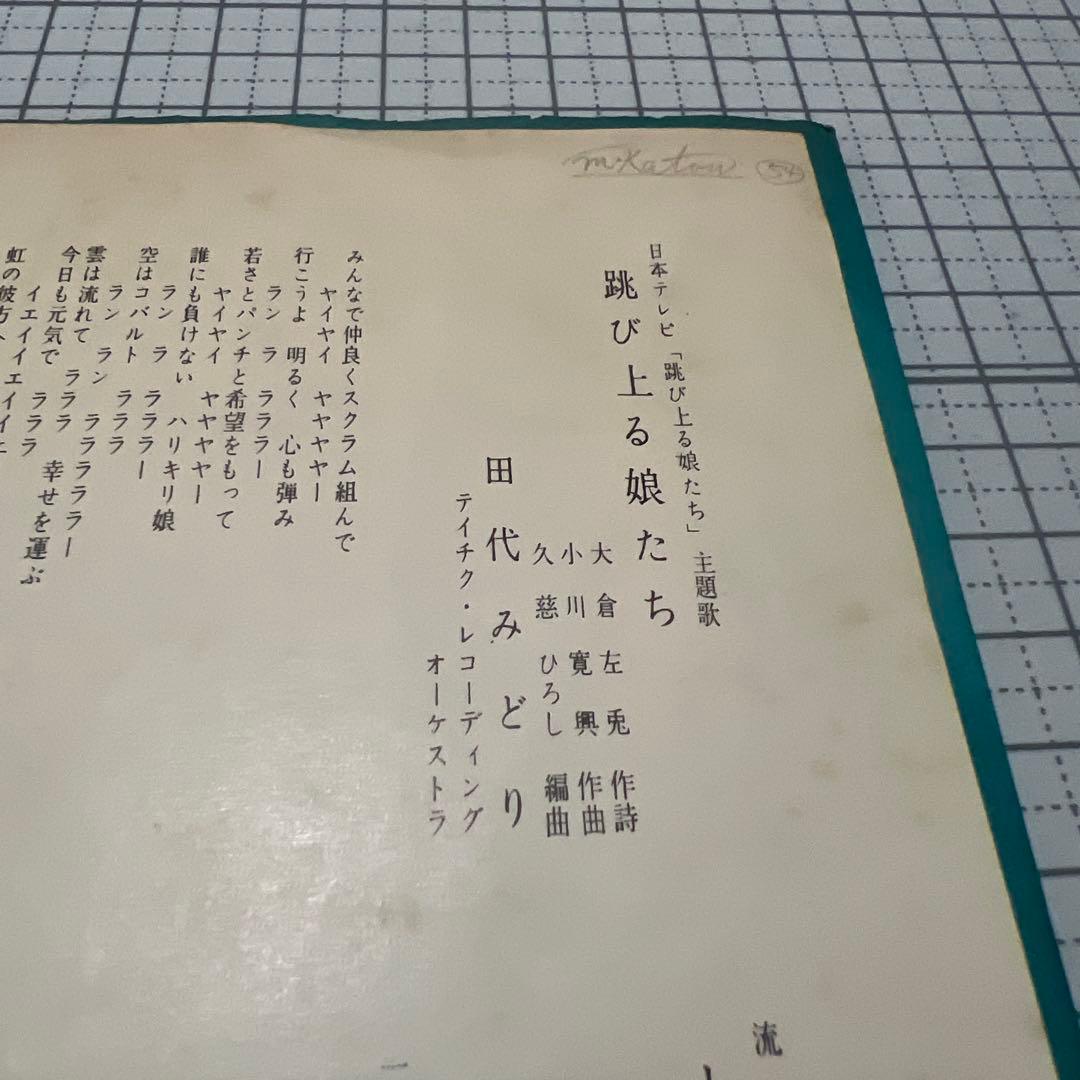 m.Katou 54
日本テレビ「跳び上る娘たち」主題歌
跳び上る娘たち
大倉左兎 作詩
小川寛興 作曲
久慈ひろし 編曲
田代みどり
テイチク・レコーディング
オーケストラ
みんなで仲良くスクラム組んで
ヤイヤイ ヤヤヤヤー
行こうよ 明るく 心も弾み
ラン ラ ララララー
若さとパンチと希望をもって
ヤイヤイ ヤヤヤヤー
誰にも負けない ハリキリ娘
ラン ラ ララララー
空はコバルト ラララ
ラン ラン ララララララー
雲は流れて ラララ
今日も元気で 幸せを運ぶ
イエイイエイイエ ラララ
虹の彼方へ
流